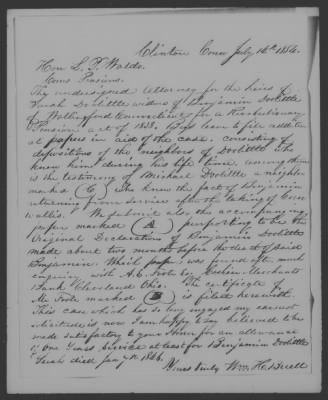 Clinton Conn July 14th 1854.
Hon L. P. Waldo.
Coms Pensions.
The undersigned attorney for the heirs of
Sarah Doolittle widow of Benjamin Doolittle
of Wallingford Connecticut for a Revolutionary
Pension, act of 1838, begs leave to file addition
al papers in aid of the case; consisting of
depositions of the neighbors of Doolittle who
knew him during his life time, among them
is the testimony of Michael Doolittle a neighbor
marked (C) who knew the fact of Benjamin
returning from service after the taking of Corn
wallis. We submit also the accompanying
paper marked (A) purporting to be the
Original Declaration of Benjamin Doolittle
made about two months before the death of said
Benjamin. Which paper was found after much
enquiry with A. C. Foote Esq Cashier Merchants
Bank Cleveland Ohio. The certificate of
Mr Foote marked (B) is filed herewith.
This case which has so long engaged my earnest
solicitude is now I am happy to say believed to be
made satisfactory to your Hon. for an allowance
of One Years service at least for Benjamin Doolittle
Sarah died Jany 18 1846.
Yours truly Wm H. Buell